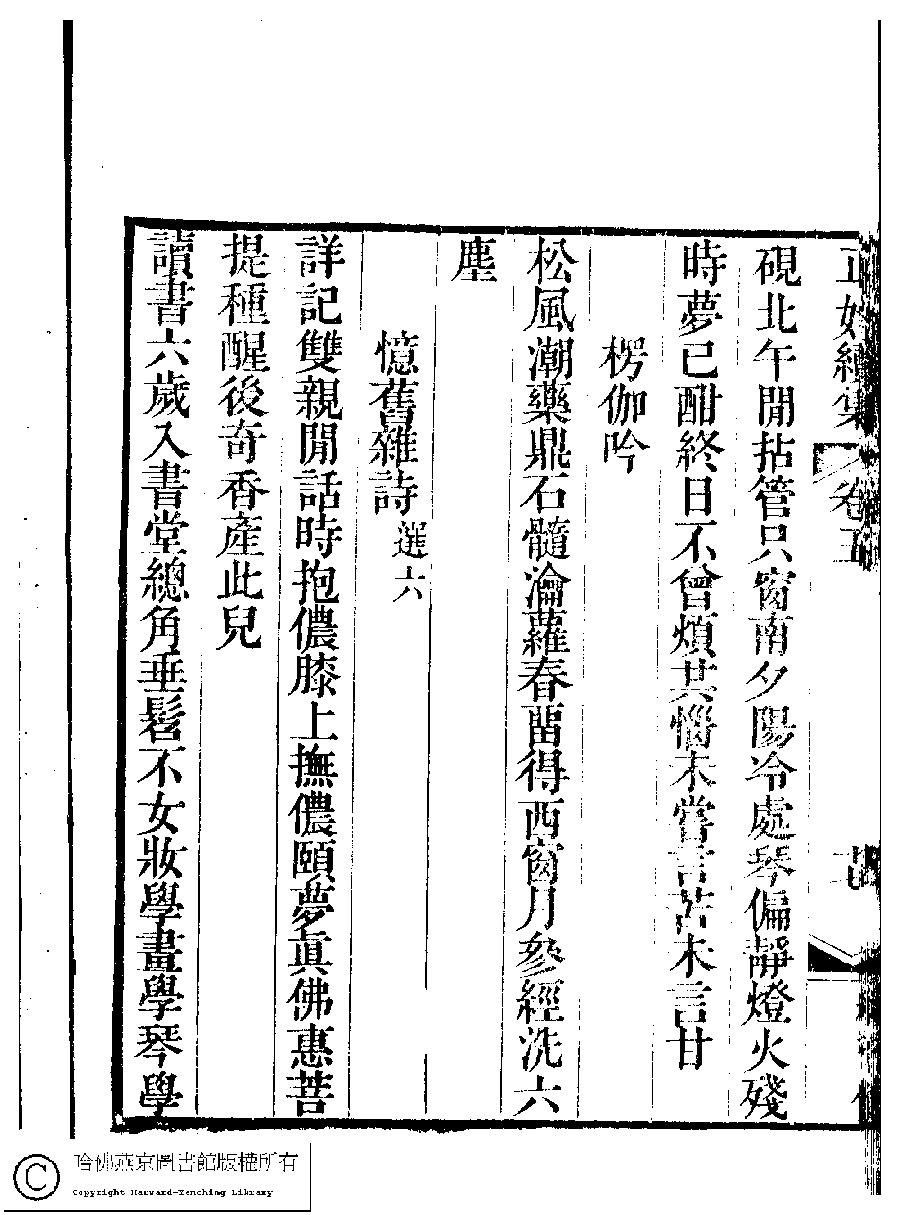 正始續集 卷五
硯北午閒拈管只窗南夕陽冷處琴偏靜燈火殘
時夢已酣終日不曾煩其惱未嘗言苦未言甘
楞伽吟
松風潮藥鼎石髓瀹蘿春畱得西窗月參經洗六
塵
憶舊雜詩 選六
詳記雙親閒話時抱儂膝上撫儂頤夢眞佛惠菩
提種醒後奇香產此兒
讀書六歲入書堂總角垂髫不女妝學畫學琴學
C 哈佛燕京圖書館版權所有
Copyright Harvard-Yenching Library